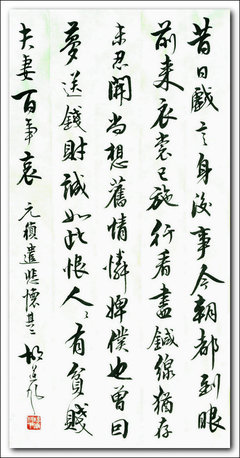 昔日戲言身後事今朝都到眼
前来衣裳已施行看盡鍼線猶存
未忍開尚想舊情憐婢僕也曾因
夢送錢財誠知此恨人〻有貧賤
夫妻百事哀 元稹遣悲懷其二